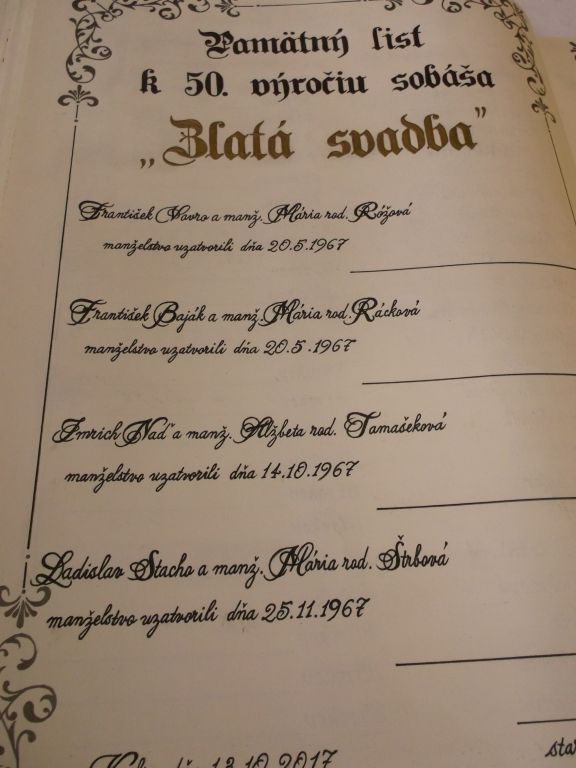 Pamätný list
k 50. výročiu sobáša
„Zlatá svadba"
František Vavro a manž. Mária rod. Róžová
manželstvo uzatvorili dňa 20.5.1967
František Baják a manž. Mária rod. Rácková
manželstvo uzatvorili dňa 20.5.1967
Imrich Naď a manž. Alžbeta rod. Tamašeková
manželstvo uzatvorili dňa 14.10.1967
Ladislav Stacho a manž. Mária rod. Štrbová
manželstvo uzatvorili dňa 25.11.1967
13.10.2017